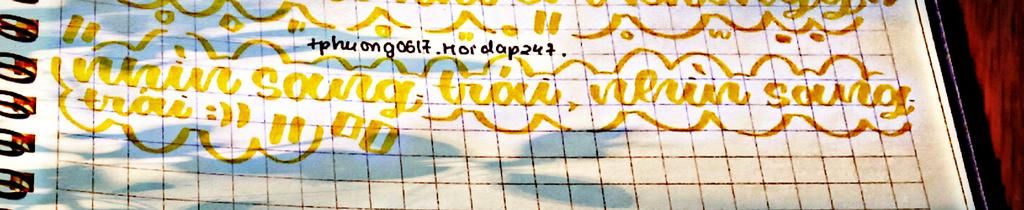 tphuong0617.Hoidap247.
nhìn sang trái, nhìn sang
trái :))